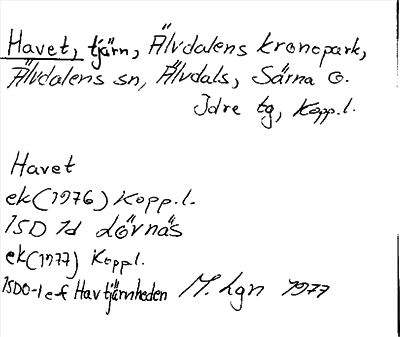 Havet, tjärn, Älvdalens kronopark,
Älvdalens sn, Älvdals, Särna o.
Idre tg, Kopp.l.
Havet
ek (1976) Kopp.l.
15D 1d Lövnäs
ek (1977) Kopp.l.
15D 0-1 e-f Havtjärnheden M. Lgn 1977